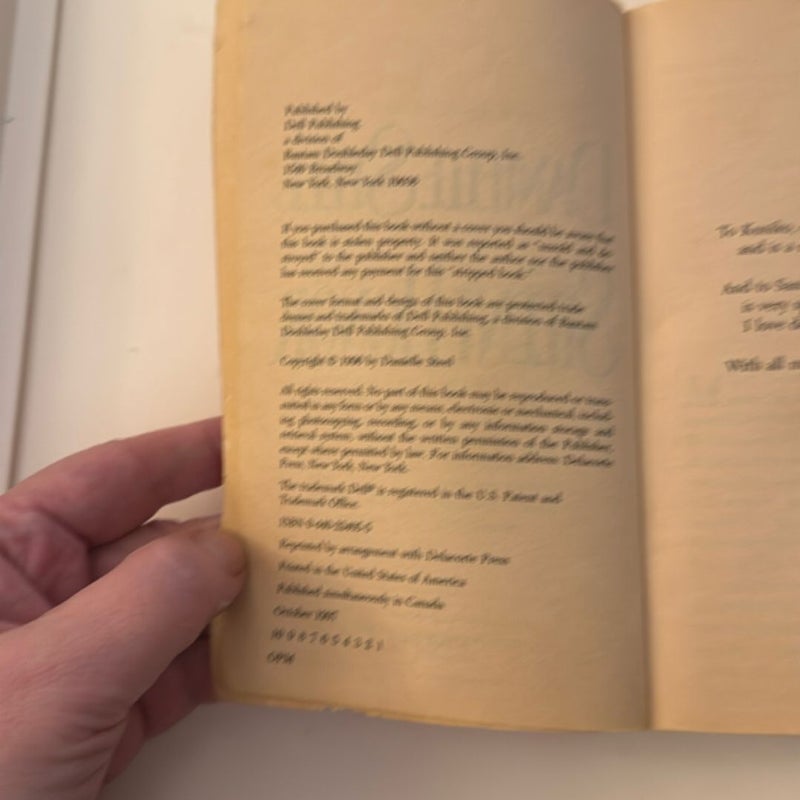 Published by
Dell Publishing
a division of
Bantam Doubleday Dell Publishing Group, Inc.
1540 Broadway
New York, New York 10036
If you purchased this book without a cover you should be aware that
this book is stolen property. It was reported as "unsold and de-
stroyed" to the publisher and neither the author nor the publisher
has received any payment for this "stripped book."
The cover format and design of this book are protected trade
dresses and trademarks of Dell Publishing, a division of Bantam
Doubleday Dell Publishing Group, Inc.
Copyright © by Danielle Steel
All rights reserved. No part of this book may be reproduced or trans-
mitted in any form or by any means, electronic or mechanical, includ-
ing photocopying, recording, or by any information storage and
retrieval system, without the written permission of the Publisher,
except where permitted by law. For information address: Delacorte
Press, New York, New York.
The trademark Dell® is registered in the U.S. Patent and
Trademark Office.
ISBN
Reprinted by arrangement with Delacorte Press
Printed in the United States of America
Published simultaneously in Canada
October
10 9 8 7 6 5 4 3 2 1
OPM
To
and in a
And to
is very
I love
With all